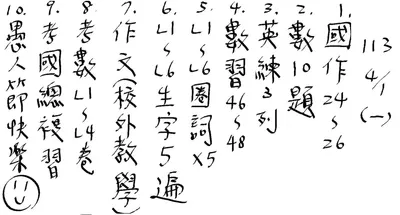 113 4/1 (一)
1. 國作24~26
2. 數10題
3. 英練3列
4. 數習46~48
5. L1~L6圈詞x5
6. L1~L6生字5遍
7. 作文(校外教學)
8. 考數L1~L4卷
9. 考國總複習
10. 愚人節快樂